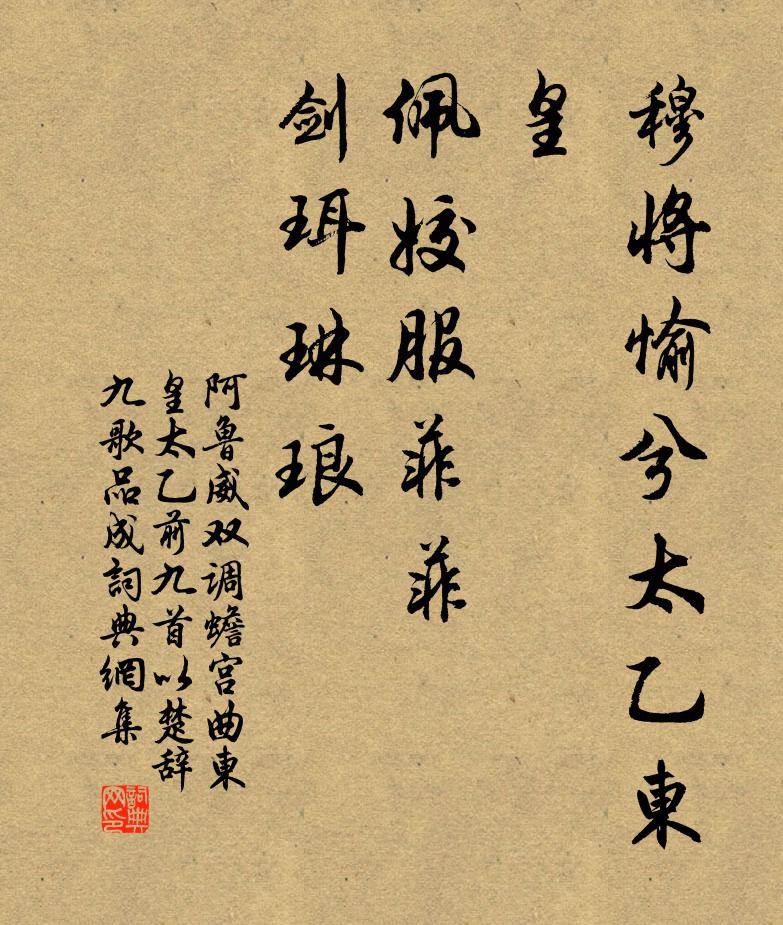 穆將愉兮太乙東
皇
佩姣服菲菲
剑珥琳琅
阿鲁威双调蟾宫曲東
皇太乙前九首以楚辞
九歌品成詞典網集
詞典
网印